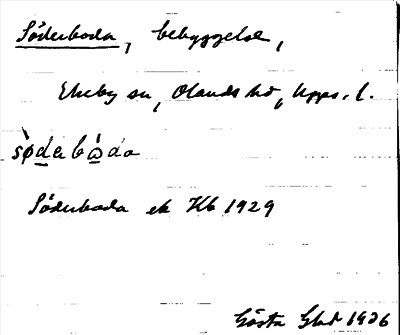 Söderboda, bebyggelse,
Ekeby sn, Olands hd, Upps. l.
sǿdabὼda
Söderboda ek Kb 1929
Gösta Glad 1936